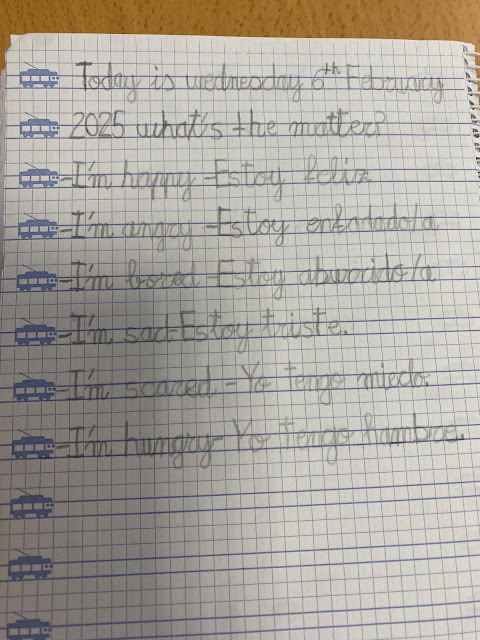 Today is wednesday 6th February
2025 what's the matter?
-I'm happy-Estoy feliz
-I'm angry-Estoy enfadado/a
-I'm bored-Estoy aburrido/a
-I'm sad-Estoy triste.
-I'm scared-Yo tengo miedo.
-I'm hungry-Yo tengo hambre.